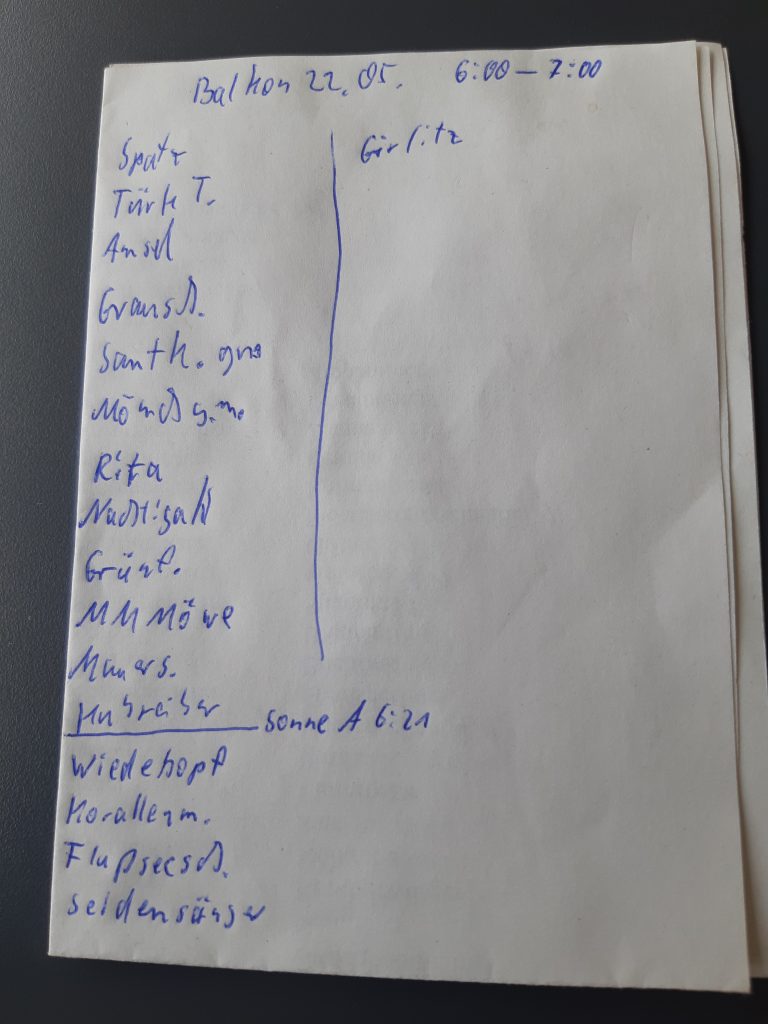 Balkon 22.05. 6:00 – 7:00
Spatz
Türk T.
Amsel
Grausch.
Samtk. gras
Mönchsgm.
Nachtigall
Grünf.
MMMöwe
Mauers.
Kuhreiher
Sonne A 6:21
Wiedehopf
Korallenm.
Flußseesch.
Seidensänger
Girlitz